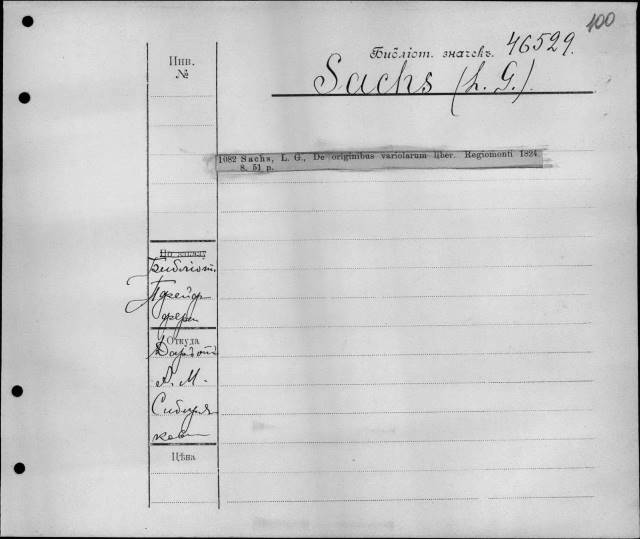 100
Библіот. значекъ. 46529.
Sachs (L. G.).
Инв.
№
1082 Sachs, L. G., De originibus variolarum liber. Regiomonti 1824
8. 51 p.
Библіот.
Пфейф
фера
Откуда
Даръ отъ
А. М.
Сибиря
кова
Цѣна